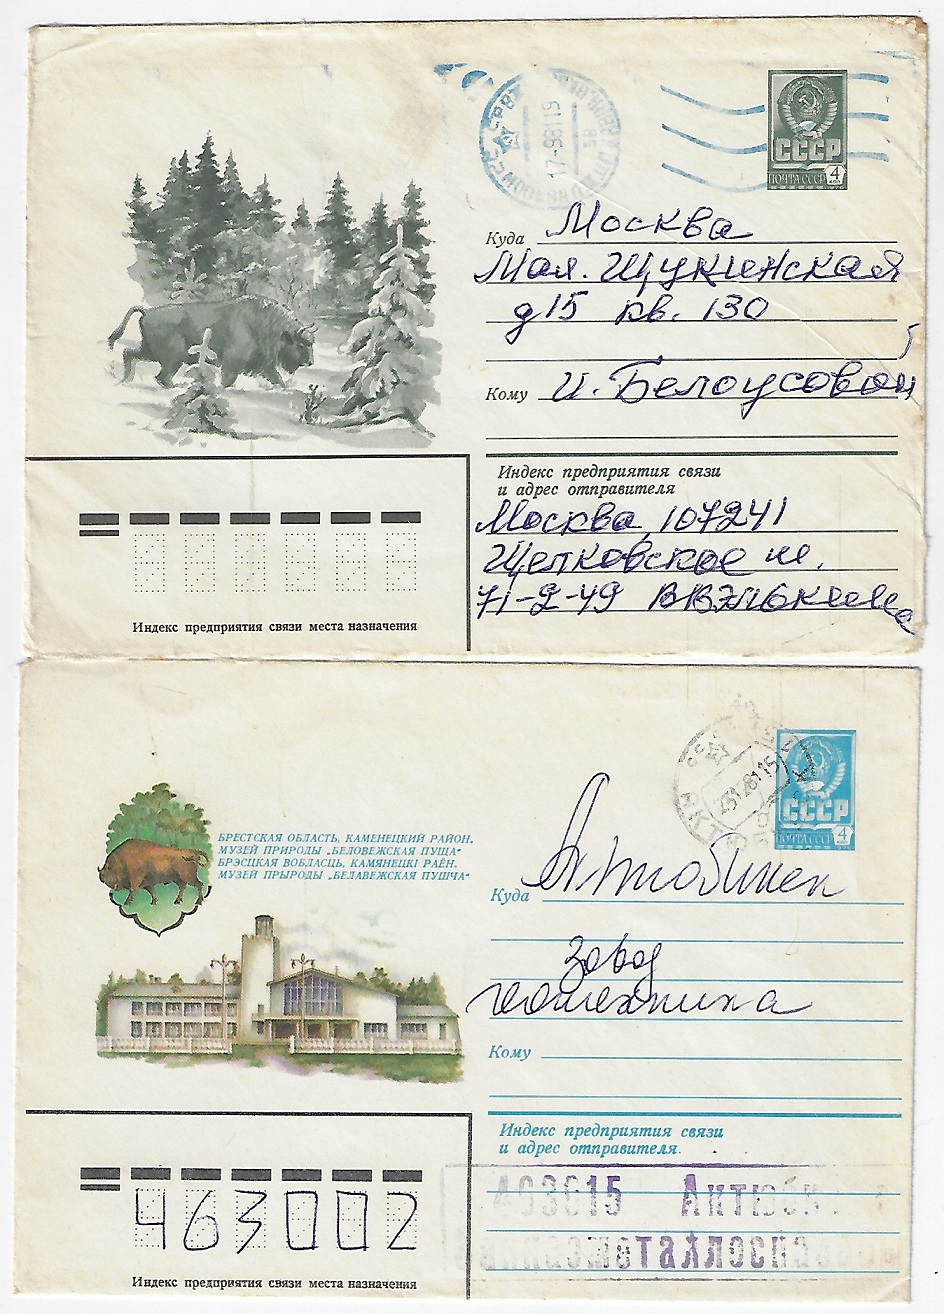 СССР
ПОЧТА СССР 4 КОП
Куда Москва
Мал. Щукинская
д 15 кв. 130
Кому И. Белоусовой
Индекс предприятия связи
и адрес отправителя
Москва 107241
Щелковское ш.
71-2-49
Индекс предприятия связи места назначения
СССР
ПОЧТА СССР 4
БРЕСТСКАЯ ОБЛАСТЬ, КАМЕНЕЦКИЙ РАЙОН.
МУЗЕЙ ПРИРОДЫ „БЕЛОВЕЖСКАЯ ПУЩА“
БРЭСЦКАЯ ВОБЛАСЦЬ, КАМЯНЕЦКІ РАЁН.
МУЗЕЙ ПРЫРОДЫ „БЕЛАВЕЖСКАЯ ПУШЧА“
Куда Актюбинск
завод
Кому
Индекс предприятия связи
и адрес отправителя.
463002
Индекс предприятия связи места назначения